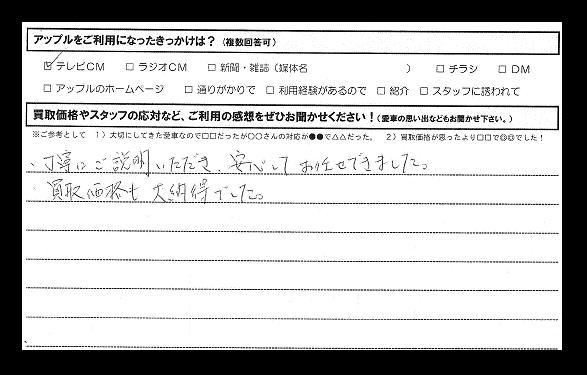 アップルをご利用になったきっかけは？（複数回答可）
☑ テレビCM □ ラジオCM □ 新聞・雑誌（媒体名 ） □ チラシ □ DM
□ アップルのホームページ □ 通りがかりで □ 利用経験があるので □ 紹介 □ スタッフに誘われて
買取価格やスタッフの応対など、ご利用の感想をぜひお聞かせください！（愛車の思い出などもお聞かせ下さい。）
※ご参考として 1）大切にしてきた愛車なので□□だったが○○さんの対応が●●で△△だった。 2）買取価格が思ったより□□で◎◎でした！
・丁寧にご説明いただき、安心してお任せできました。
・買取価格も大納得でした。